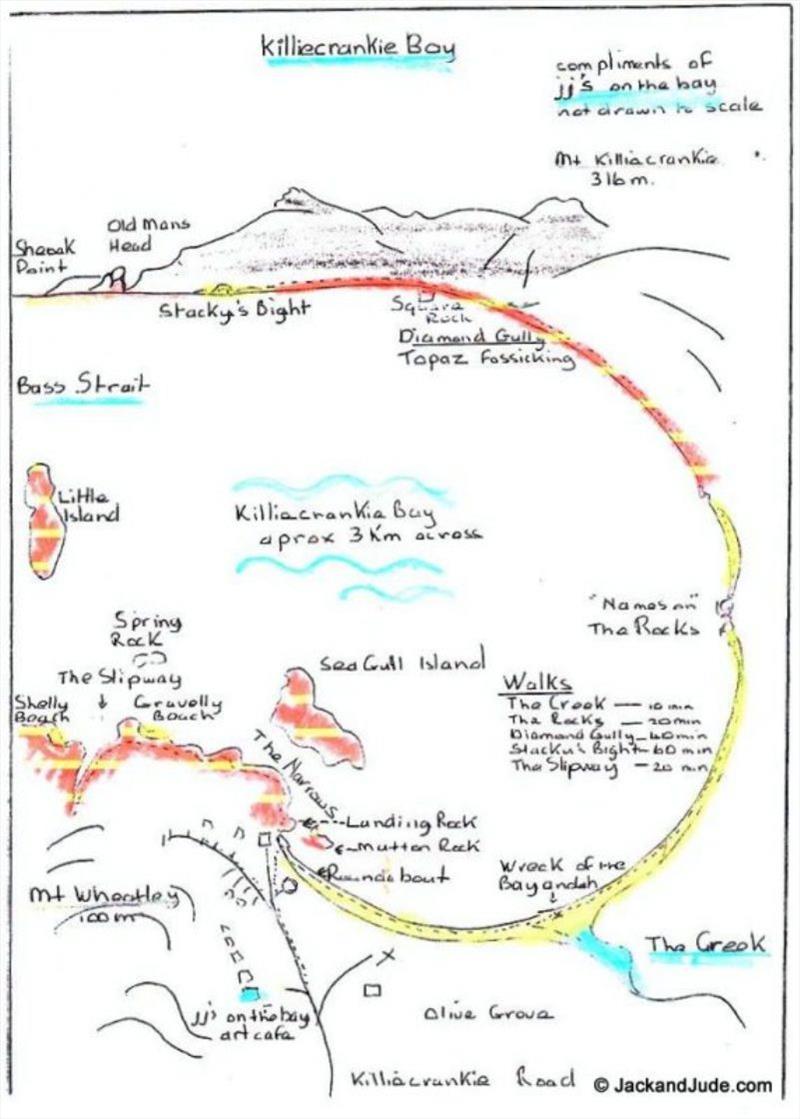 Killiecrankie Bay
compliments of
jj's on the bay
not drawn to scale
Mt Killiecrankie
316m.
Old Mans
Head
Sheoak
Point
Stacky's Bight
Square
Rock
Diamond Gully
Topaz Fossicking
Bass Strait
Little
Island
Killiecrankie Bay
aprox 3 Km across
"Names on"
The Rocks
Spring
Rock
The Slipway
Shelly
Beach
Gravelly
Beach
Sea Gull Island
The Narrows
Walks
The Creek — 10 min
The Rocks — 20 min
Diamond Gully — 40 min
Stacky's Bight — 60 min
The Slipway — 20 min
Landing Rock
Mutton Rock
Roundabout
Wreck of the
Mt Wheatley
100m
The Creek
jj's on the bay
art cafe
Olive Grove
Killiecrankie Road
© JackandJude.com